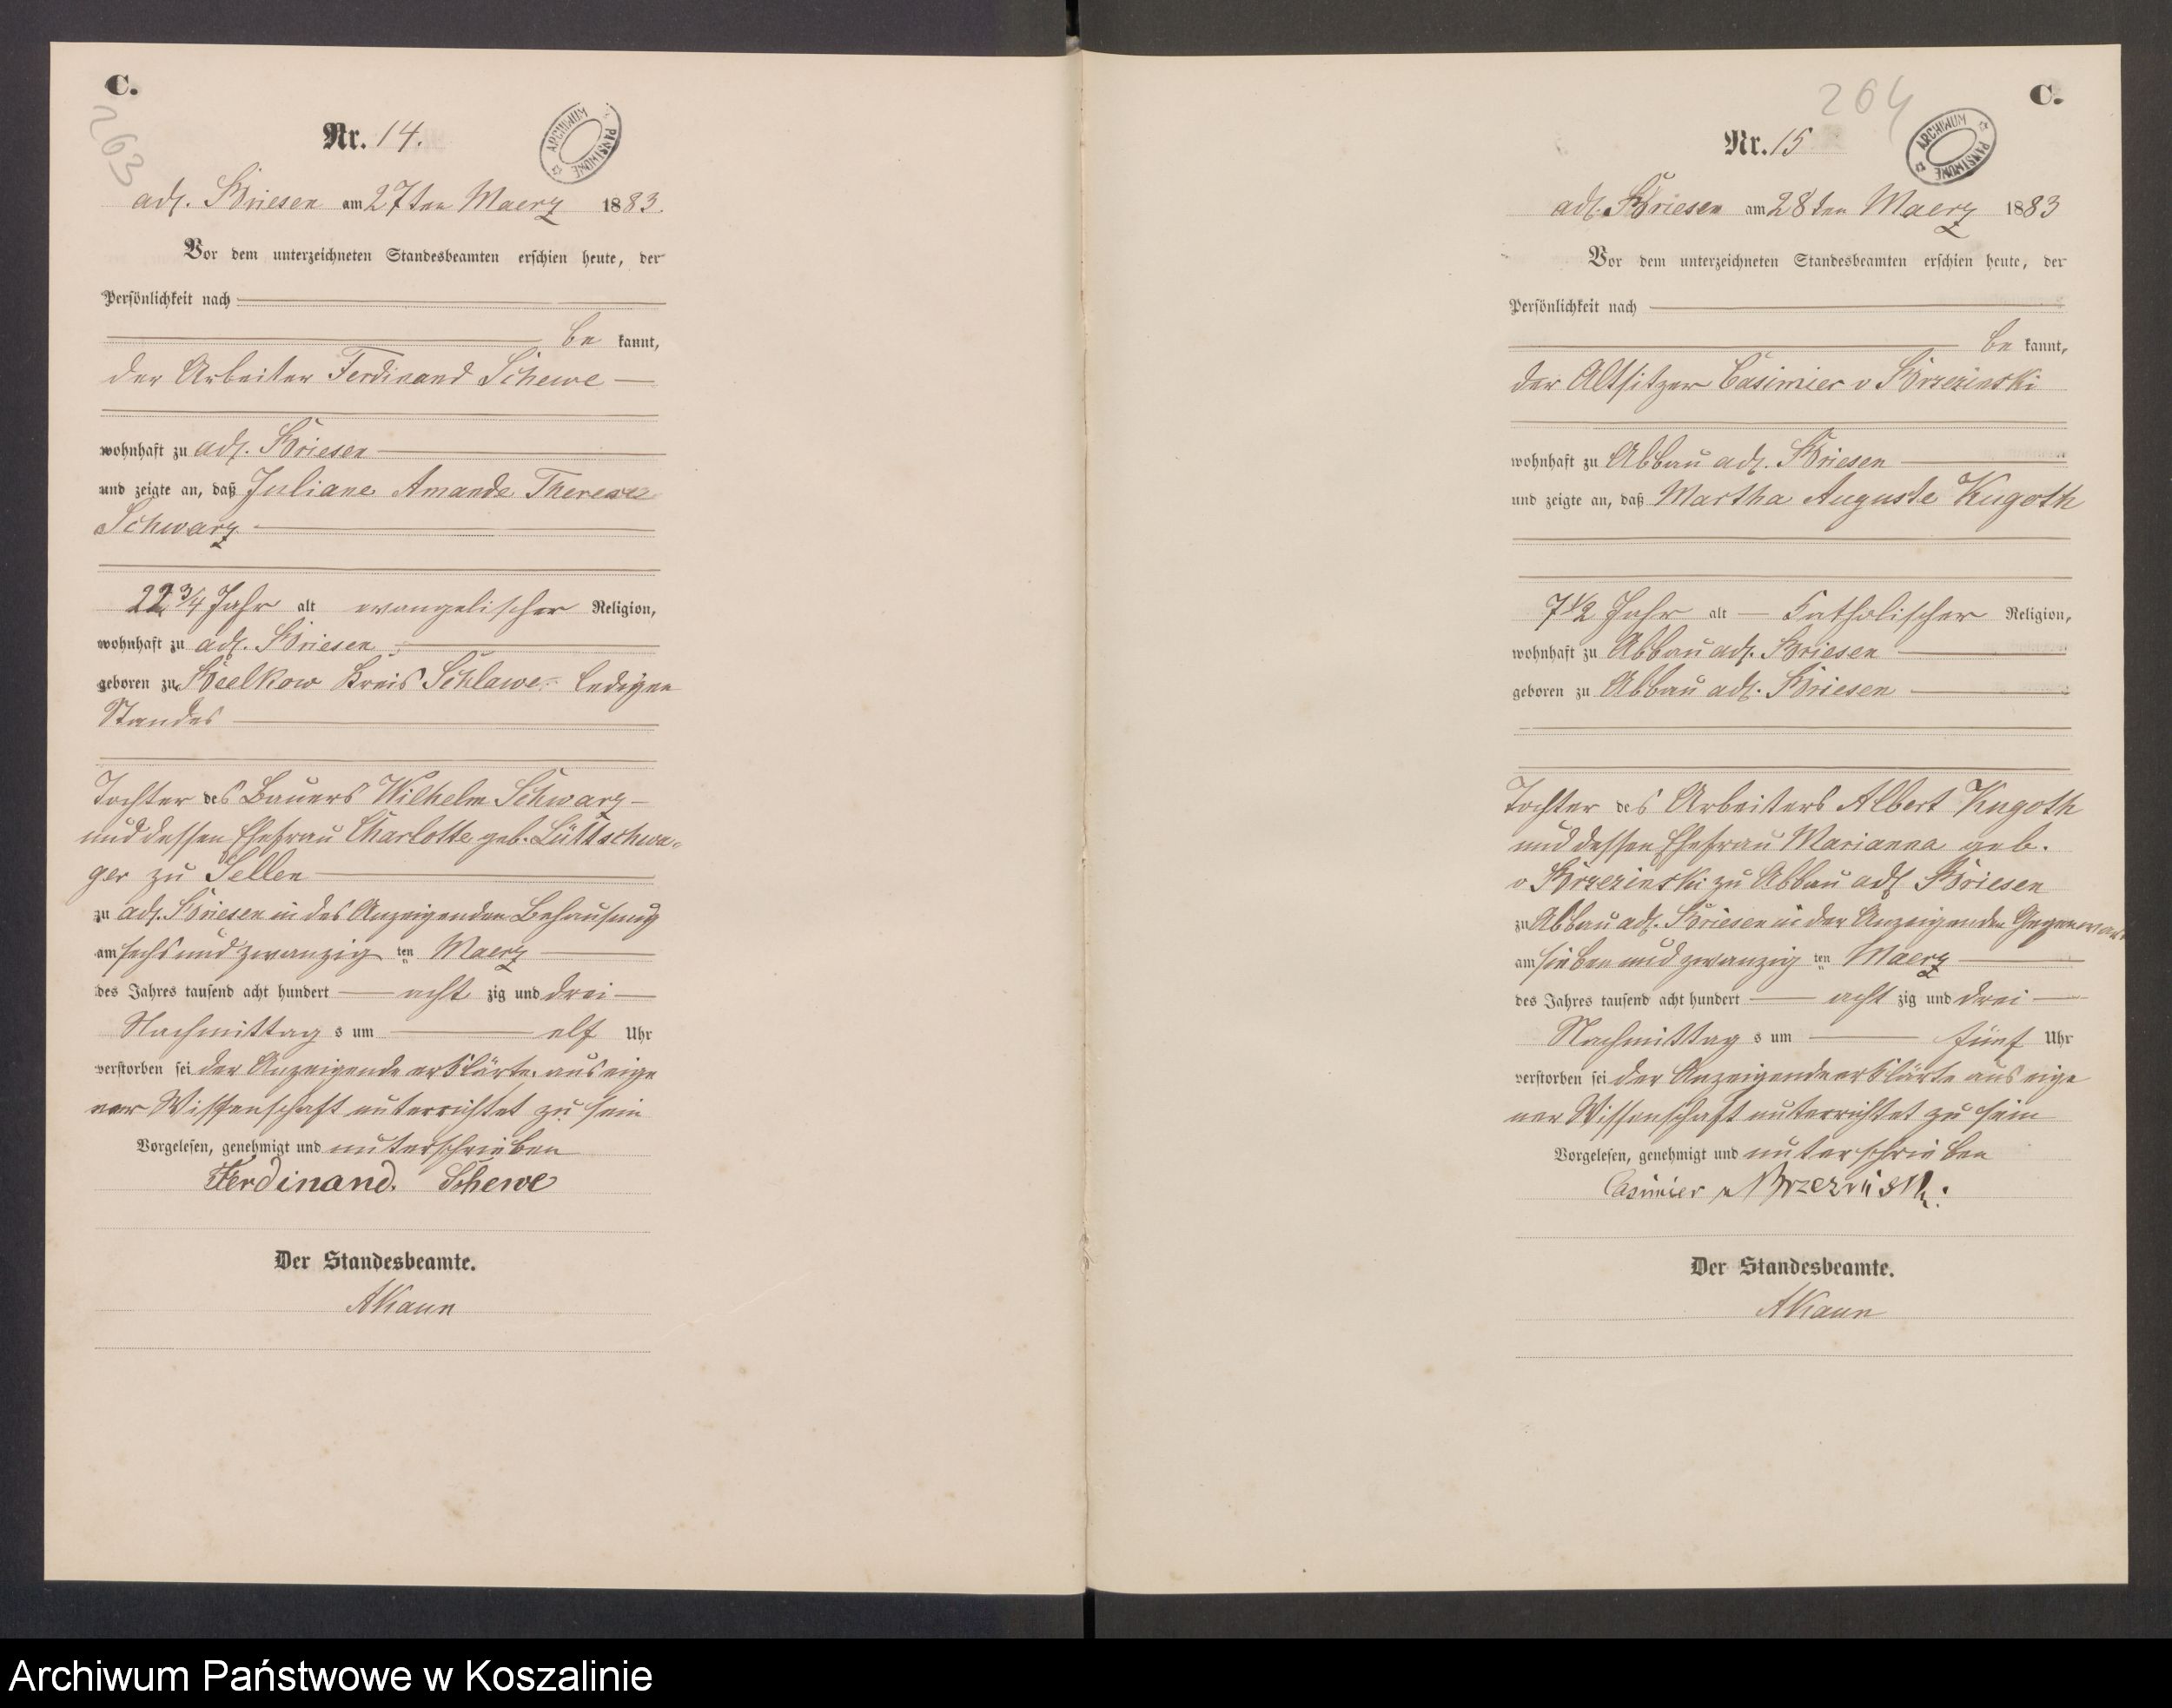 C.
263
Nr. 14.
ARCHIWUM PAŃSTWOWE
adl. Briesen am 27ten Maerz 1883.
Vor dem unterzeichneten Standesbeamten erschien heute, der
Persönlichkeit nach
be kannt,
der Arbeiter Ferdinand Schewe
wohnhaft zu adl. Briesen
und zeigte an, daß Juliane Amande Therese
Schwarz
22 3/4 Jahr alt evangelischer Religion,
wohnhaft zu adl. Briesen
geboren zu Beelkow Kreis Schlawe ledigen
Standes
Tochter des Bauers Wilhelm Schwarz
und dessen Ehefrau Charlotte geb. Lüttschwa-
ger zu Sellen
zu adl. Briesen in des Anzeigenden Behausung
am sechs und zwanzig ten Maerz
des Jahres tausend acht hundert acht zig und drei
Nachmittag s um elf Uhr
verstorben sei der Anzeigende erklärte aus eige
ner Wissenschaft unterrichtet zu sein
Vorgelesen, genehmigt und unterschrieben
Ferdinand. Schewe
Der Standesbeamte.
AKaun
264
C.
Nr. 15
ARCHIWUM PAŃSTWOWE
adl. Briesen am 28ten Maerz 1883
Vor dem unterzeichneten Standesbeamten erschien heute, der
Persönlichkeit nach
be kannt,
der Altsitzer Casimier v Brzezinski
wohnhaft zu Abbau adl. Briesen
und zeigte an, daß Martha Auguste Kugoth
7 1/2 Jahr alt — katholischer Religion,
wohnhaft zu Abbau adl. Briesen
geboren zu Abbau adl. Briesen
Tochter des Arbeiters Albert Kugoth
und dessen Ehefrau Marianna geb.
v Brzezinski zu Abbau adl Briesen
zu Abbau adl. Briesen in der Anzeigenden Gegenwart
am sieben und zwanzig ten Maerz
des Jahres tausend acht hundert acht zig und drei
Nachmittag s um fünf Uhr
verstorben sei der Anzeigende erklärte aus eige
ner Wissenschaft unterrichtet zu sein
Vorgelesen, genehmigt und unterschrieben
Casimier v Brzezinski.
Der Standesbeamte.
AKaun
Archiwum Państwowe w Koszalinie